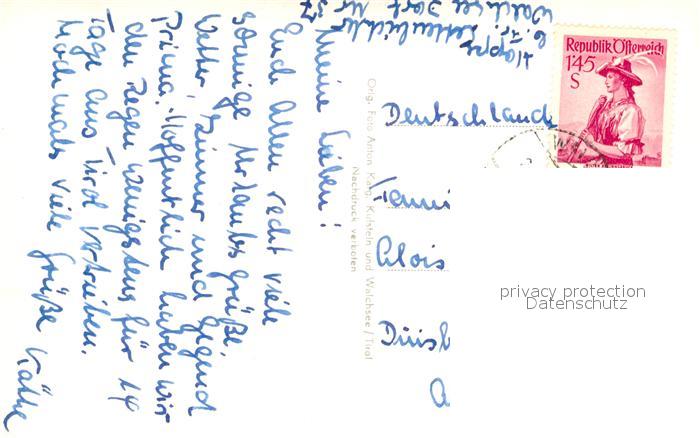 Meine Lieben!
Euch Allen recht viele
sonnige Urlaubsgrüße.
Wetter, Zimmer und Gegend
Prima. Hoffentlich haben wir
den Regen wenigstens für 14
Tage aus Tirol vertrieben.
Nochmals viele Grüße Käthe
Walchsee Dorf Nr 57
Orig. Foto Anton Karg, Kufstein und Walchsee / Tirol
Nachdruck verboten
Republik Österreich
1'45
S
Deutschland
Alois
privacy protection
Datenschutz